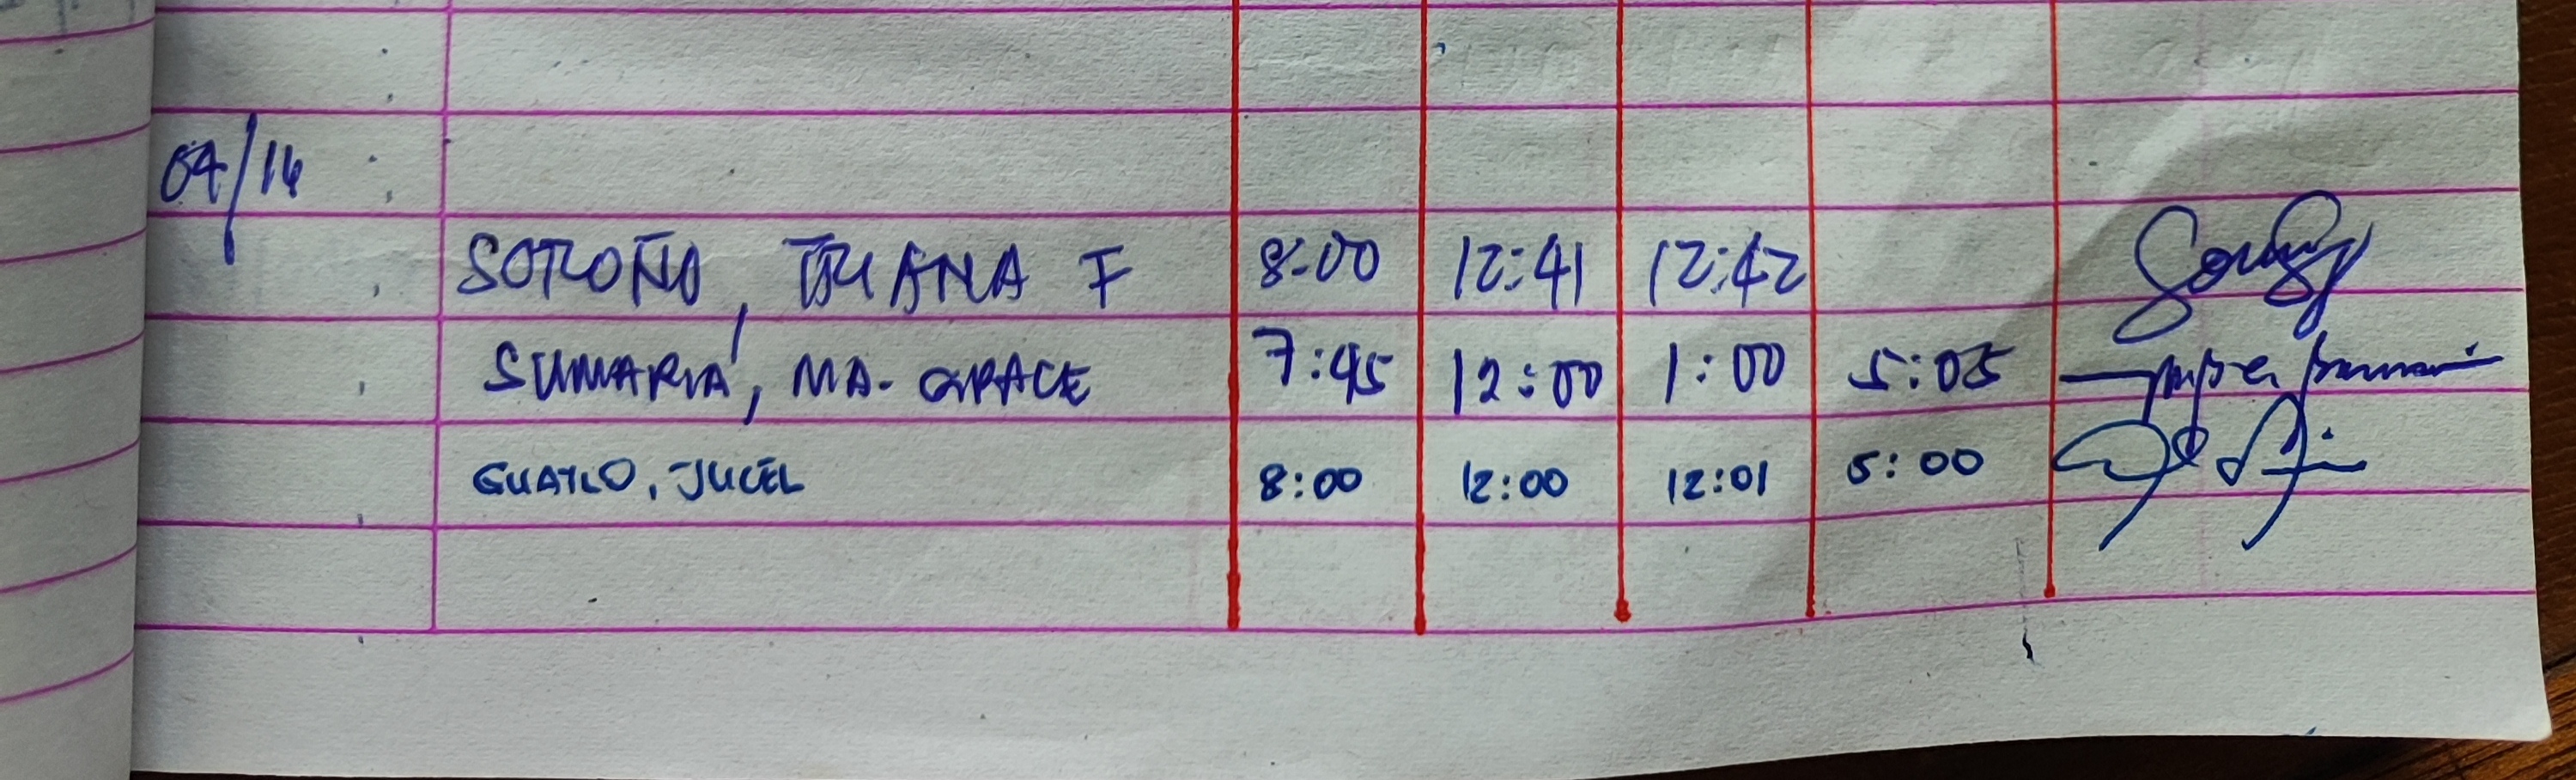 04/16
SOROÑO, TRIANA F 8:00 12:41 12:42
SUMARIA, MA. GRACE 7:45 12:00 1:00 5:05
GUAYLO, JUCEL 8:00 12:00 12:01 5:00